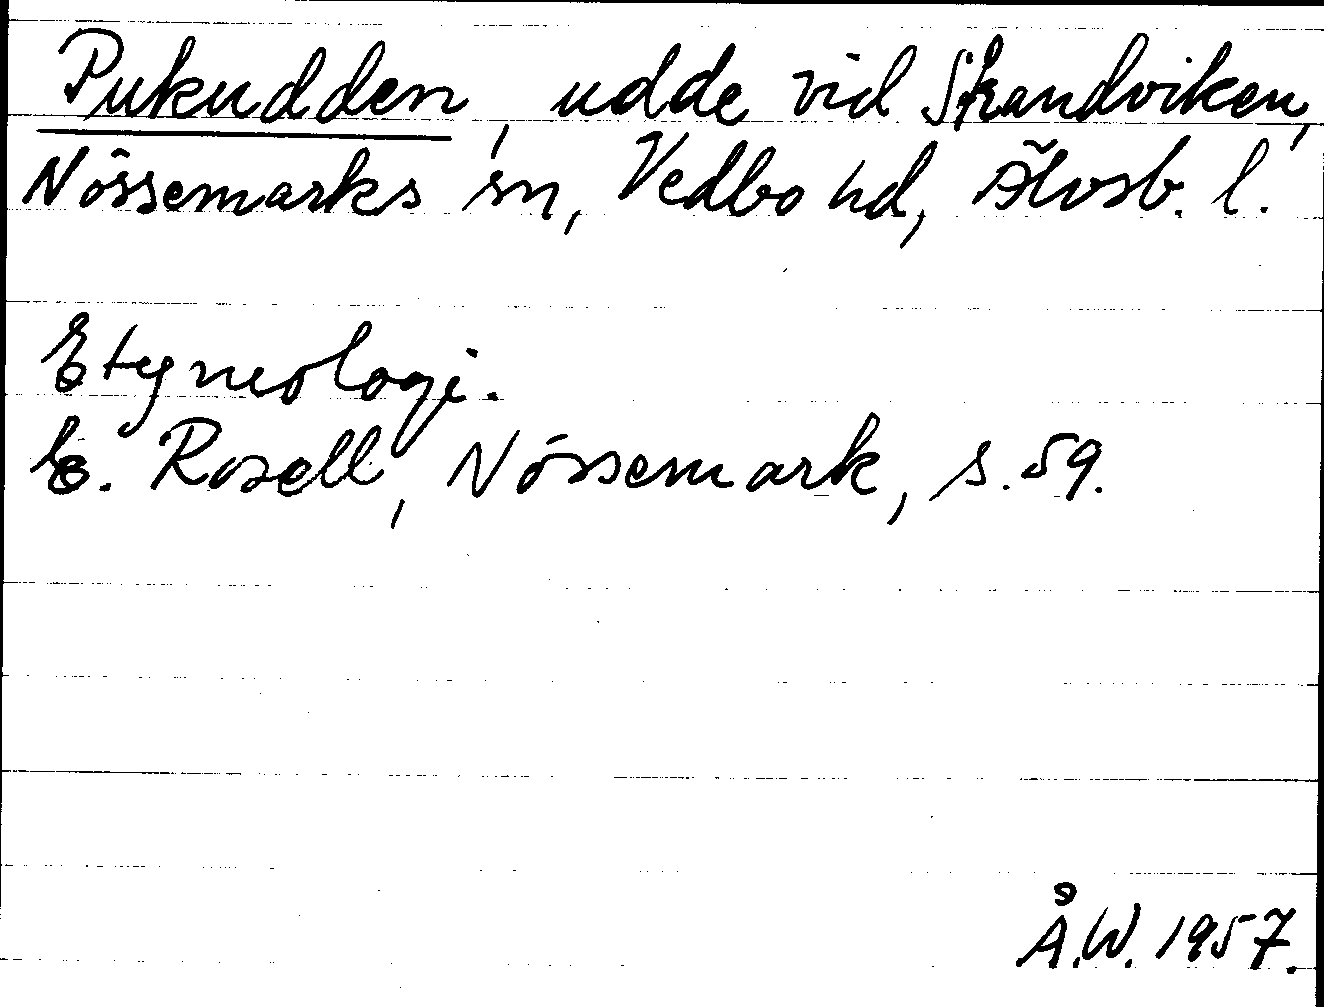 Pukudden, udde vid Strandviken,
Nössemarks sn, Vedbo hd, Älvsb. l.
Etymologi.
E. Rosell, Nössemark, s. 59.
Å.W. 1957.